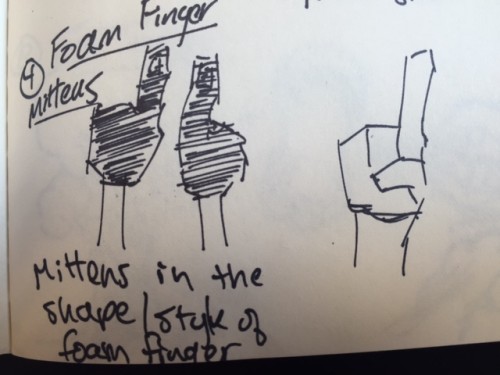 ④ Foam Finger
Mittens
Mittens in the
shape/style of
foam finger